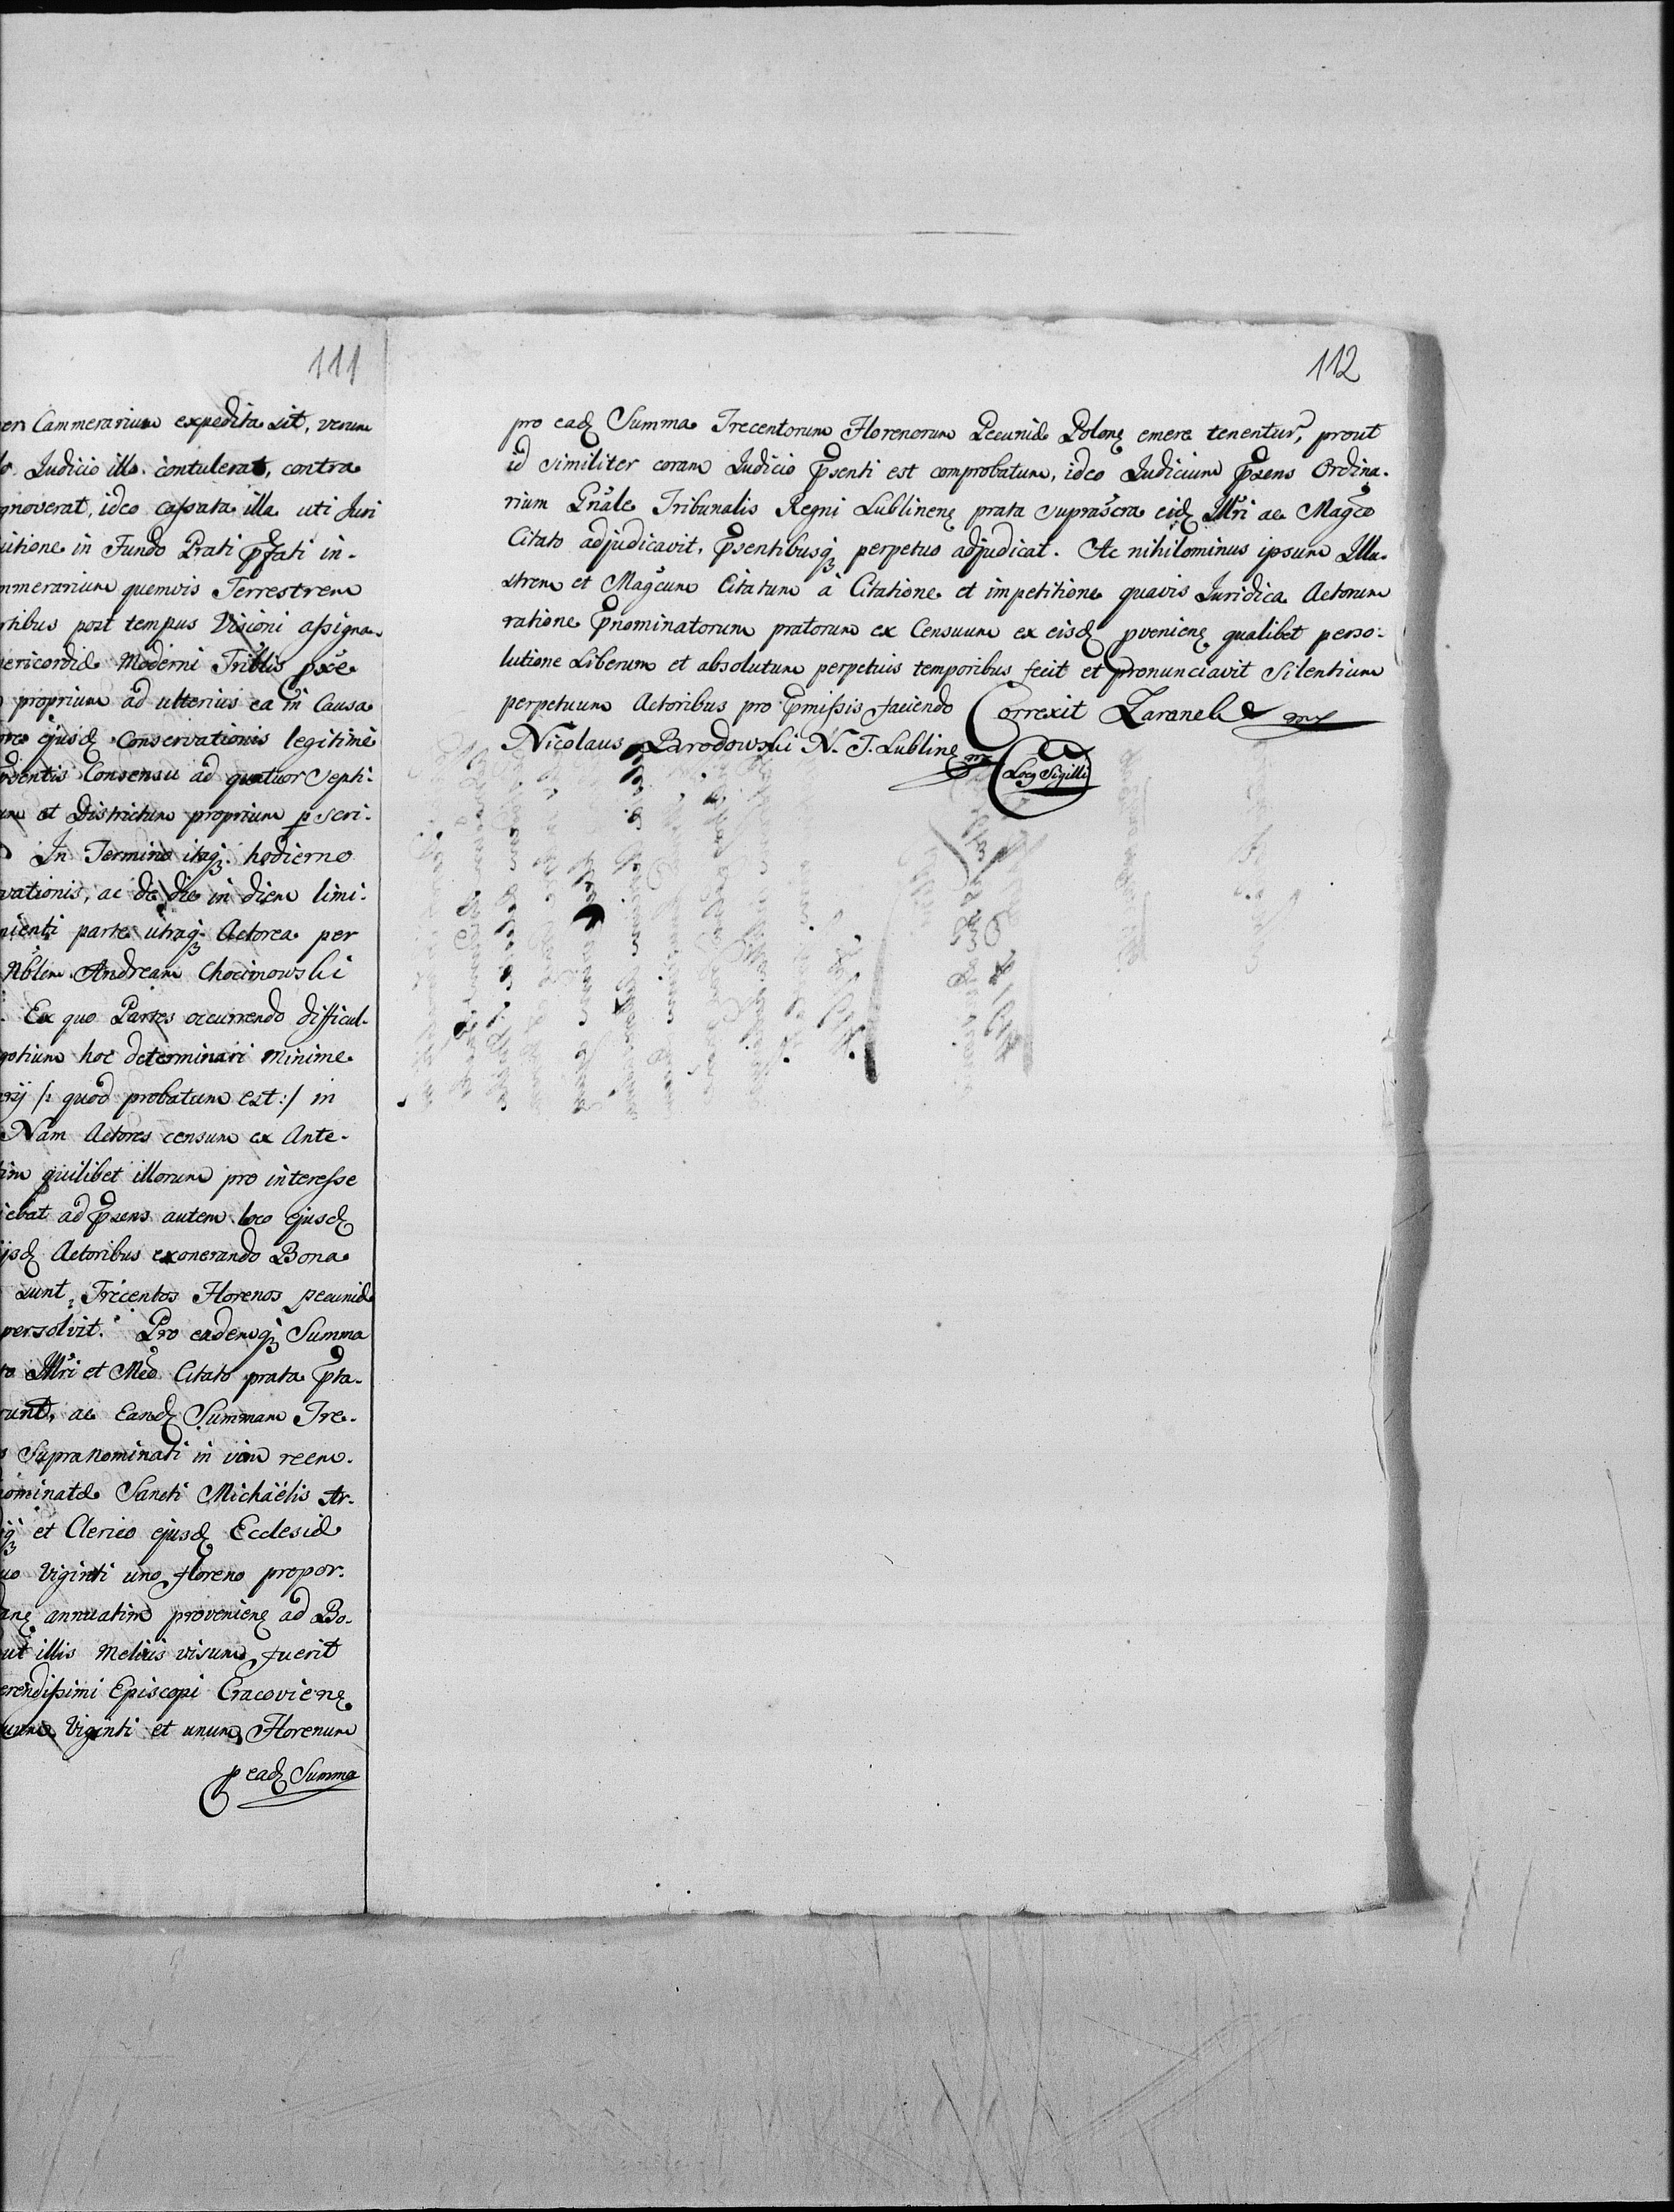 111
en Cammerarium expedita sit, verum
Judicio illo contulerat, contra
gnoverat, ideo cassata illa uti Juri
uitione in Fundo Prati pfati in-
mmerarium quemvis Terrestrem
rtibus post tempus Visioni assigna
sericordiæ Moderni Triblis pxe
proprium ad ulterius ea in Causa
ejusd Conservationis legitime
Consensu ad quatuor Septi-
um et Districtum proprium p scri-
In Termino itaq hodierno
vationis, ac de die in diem limi-
nienti parte utraq Actorea per
Nblem Andream Chocimowski
Ex quo Partes occurrendo difficul-
gotium hoc determinari minime
rij /: quod probatum est :/ in
Nam Actores censum ex Ante-
tim quilibet illorum pro interesse
iebat ad psens autem loco ejusd
ijsd Actoribus exonerando Bona
sunt, Trecentos Florenos pecuniæ
persolvit. Pro eademq Summa
Illri et Mco Citato prata pta-
runt, ac Eand Summam Tre-
Supranominati in vim reem-
nominatæ Sancti Michaëlis Ar-
q et Clerico ejusd Ecclesiæ
uo Viginti uno floreno propor-
annuatim provenien ad Bo-
ut illis melius visum fuerit
erendissimi Episcopi Cracovien
Viginti et unum Florenum
p ead Summa
112
pro ead Summa Trecentorum Florenorum Pecuniæ Polon emere tenentur, prout
id similiter coram Judicio psenti est comprobatum, ideo Judicium psens Ordina-
rium Gnale Tribunalis Regni Lublinen prata suprascra eid Illri ac Magco
Citato adjudicavit, psentibusq perpetuo adjudicat. Ac nihilominus ipsum Illu-
strem et Magcum Citatum à Citatione et impetitione quavis Juridica Actorum
ratione pnominatorum pratorum ex Censuum ex eisd pvenien qualibet perso-
lutione Liberum et absolutum perpetuis temporibus fecit et pronunciavit Silentium
perpetuum Actoribus pro pmissis faciendo Correxit Zaranek mp
Nicolaus Brodowski N. T. Lublinen mp Locg Sigilli